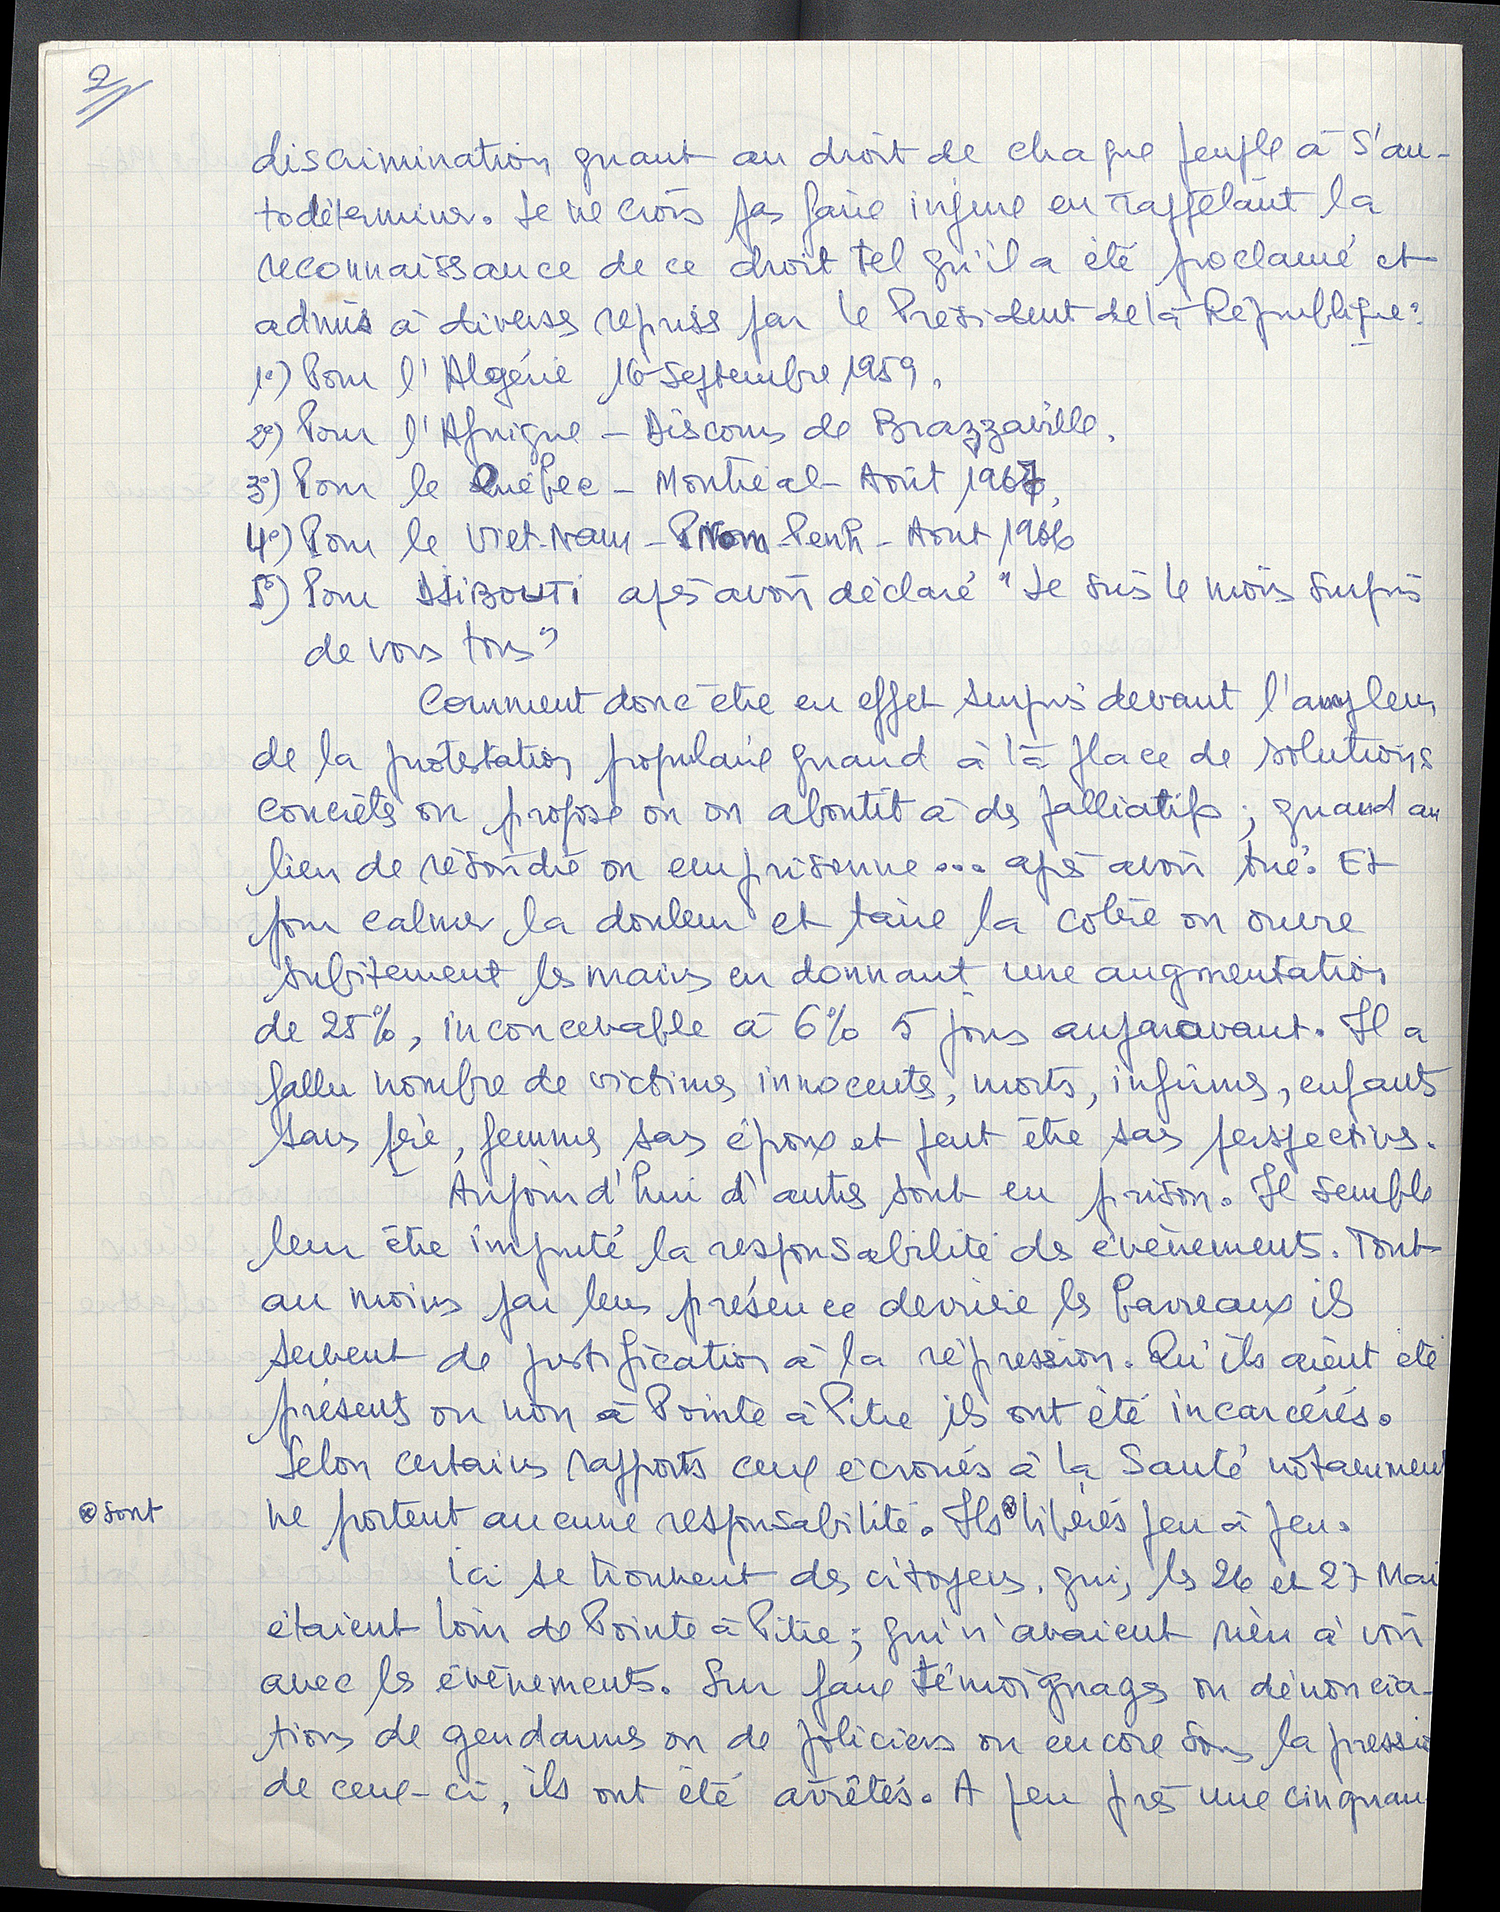 2
discrimination quant au droit de chaque peuple à s'au-
todéterminer. Je ne crois pas faire injure en rappelant la
reconnaissance de ce droit tel qu'il a été proclamé et
admis à diverses reprises par le Président de la République:
1°) Pour l'Algérie 16 Septembre 1959,
2°) Pour l'Afrique - Discours de Brazzaville,
3°) Pour le Québec - Montréal - Août 1967,
4°) Pour le Viet-Nam - Pnom-Penh - Aout 1966
5°) Pour DJIBOUTI après avoir déclaré "Je suis le moins surpris
de vous tous"
Comment donc être en effet surpris devant l'ampleur
de la protestation populaire quand à la place de solutions
concrètes on propose ou on aboutit à des palliatifs ; quand au
lieu de résoudre on emprisonne... après avoir tué. Et
pour calmer la douleur et taire la colère on ouvre
subitement les mains en donnant une augmentation
de 25%, inconcevable à 6% 5 jours auparavant. Il a
fallu nombre de victimes innocentes, morts, infirmes, enfants
sans père, femmes sans époux et peut être sans perspectives.
Aujourd'hui d'autres sont en prison. Il semble
leur être imputé la responsabilité des évènements. Tout
au moins par leur présence derrière les barreaux ils
servent de justification à la répression. Qu'ils aient été
présents ou non à Pointe à Pitre ils ont été incarcérés.
Selon certains rapports ceux écroués à la Santé notamment
ne portent aucune responsabilité. Ils ⊗ libérés peu à peu.
⊗ sont
Ici se trouvent des citoyens, qui, les 26 et 27 Mai
étaient loin de Pointe à Pitre ; qui n'avaient rien à voir
avec les évènements. Sur faux témoignages ou dénoncia-
tions de gendarmes ou de policiers ou encore sous la pressio
de ceux-ci, ils ont été arrêtés. A peu près une cinquan